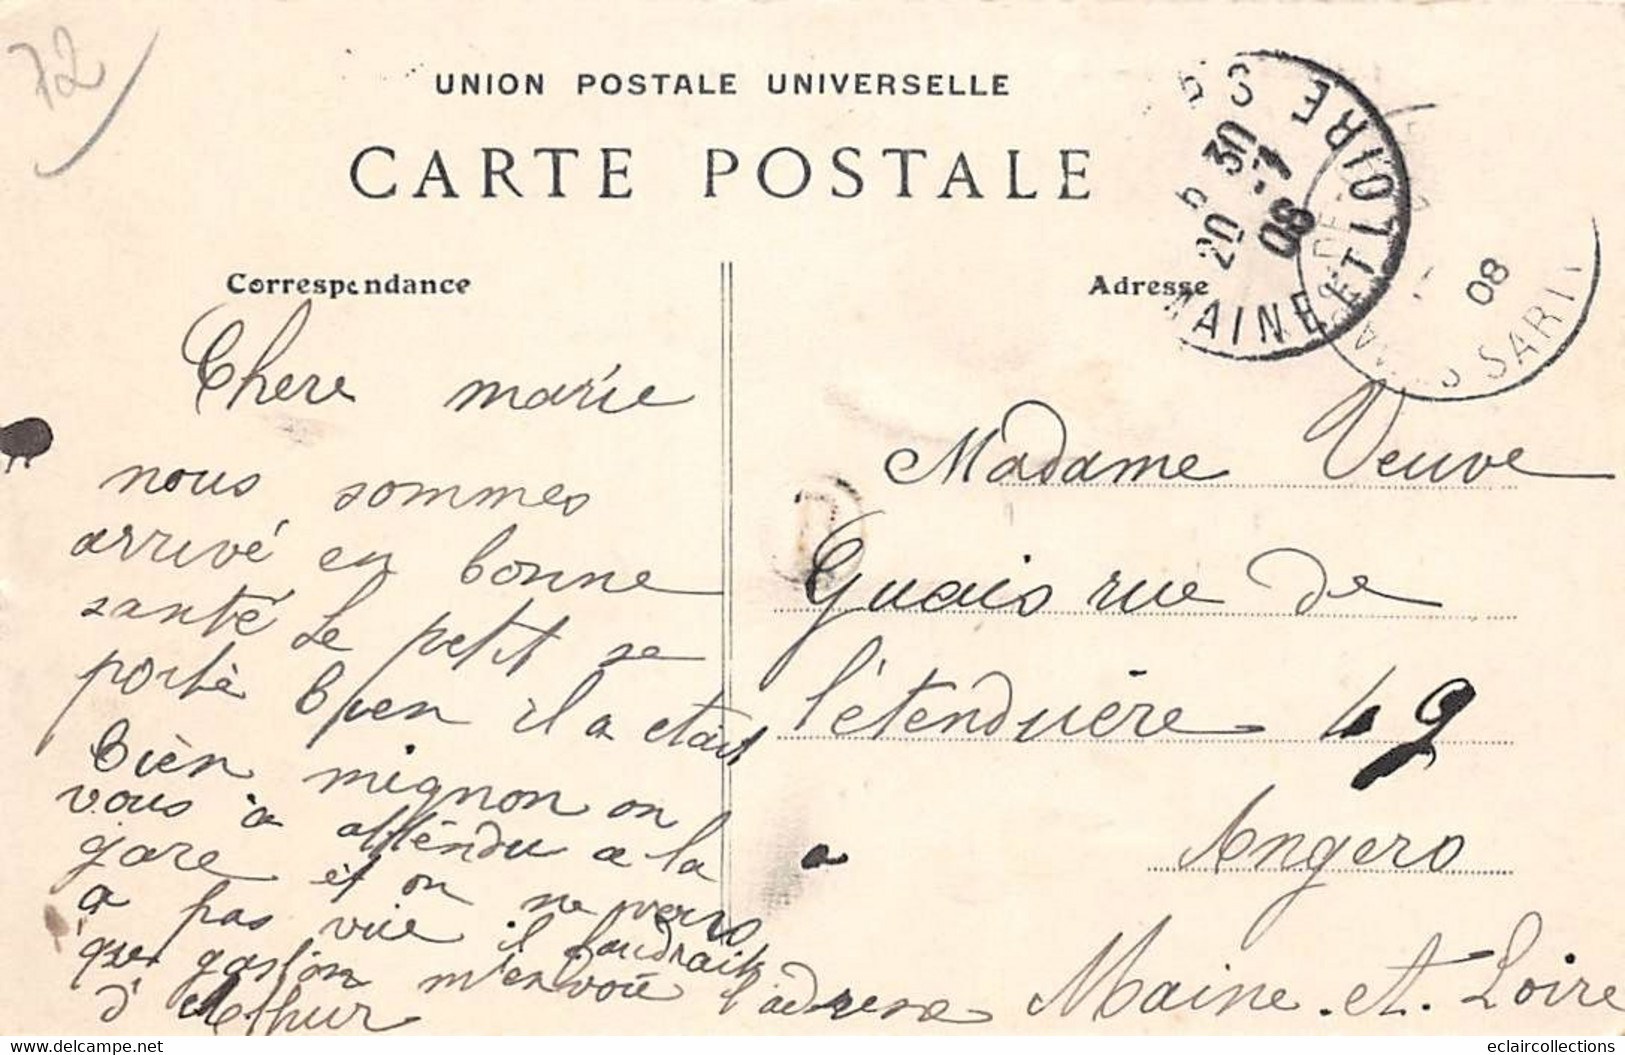 72
UNION POSTALE UNIVERSELLE
CARTE POSTALE
Correspondance
Adresse
5 S
LOIRE
5 30
20 -7
08
MAINE ET LOIRE
08
SART
Chere marie
nous sommes
arrivé en bonne
santé Le petit se
porte bien il a etait
bien mignon on
vous à attendu a la
gare et on ne vous
a pas vue il faudrait
que gaston m'envoie l'adresse
d'Arthur
Madame Veuve
Quais rue de
l'étenduère 49
a Angers
Maine. et. Loire
R
eclaircollections
www.delcampe.net